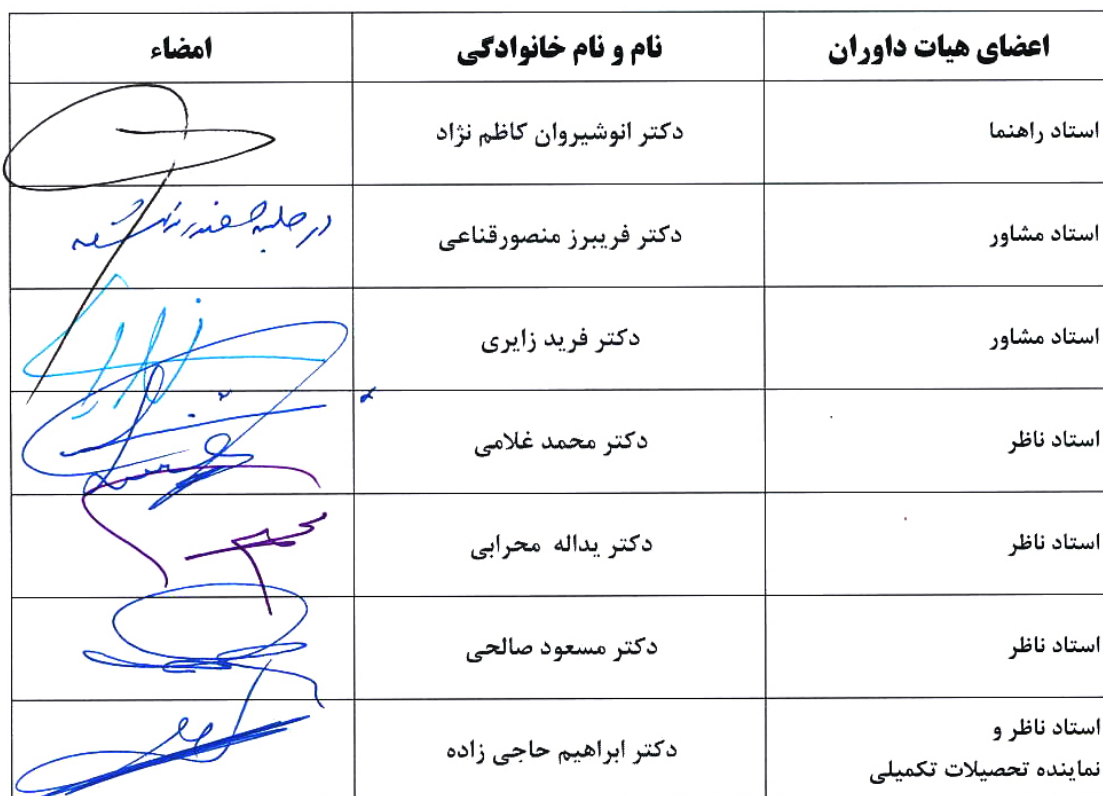 اعضای هیات داوران	نام و نام خانوادگی	امضاء
استاد راهنما	دکتر انوشیروان کاظم نژاد
استاد مشاور	دکتر فریبرز منصورقناعی	در جلسه
استاد مشاور	دکتر فرید زایری
استاد ناظر	دکتر محمد غلامی
استاد ناظر	دکتر یداله محرابی
استاد ناظر	دکتر مسعود صالحی
استاد ناظر و
نماینده تحصیلات تکمیلی	دکتر ابراهیم حاجی زاده